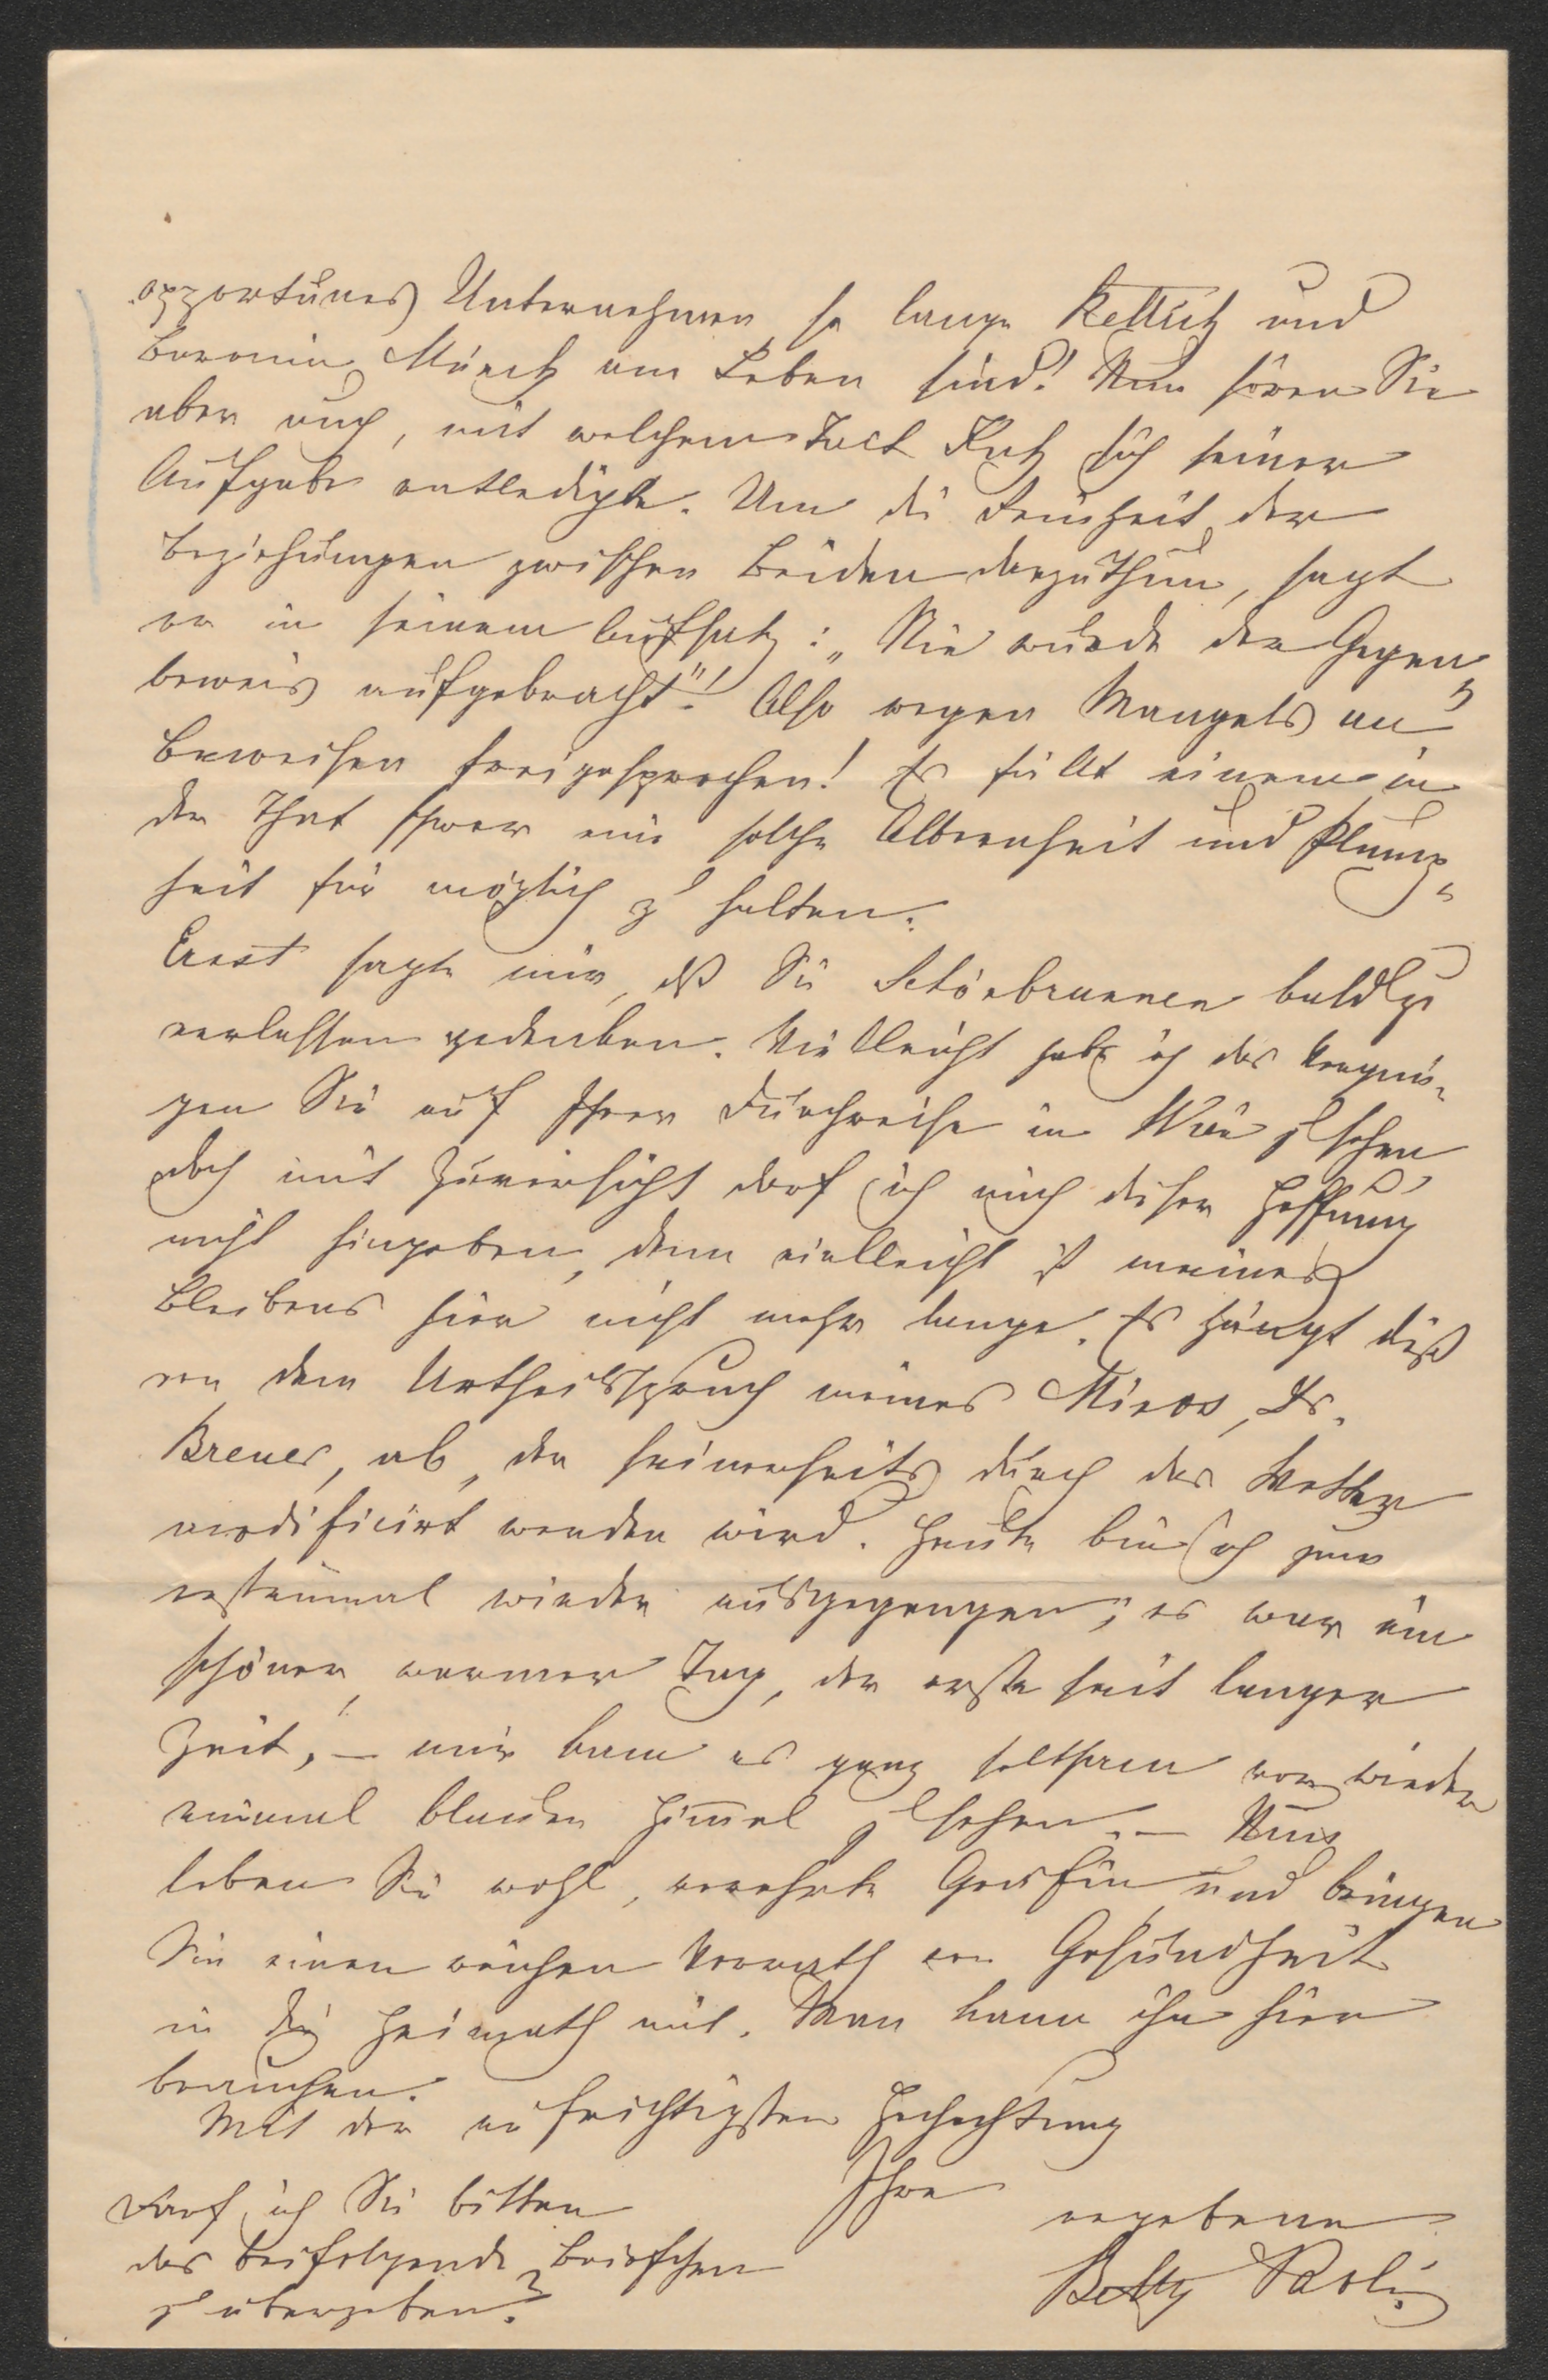 opportunes Unternehmen so lange Rettich und
Baronin Münch am Leben sind! Nun hören Sie
aber auch, mit welchem Tact sich seiner
Aufgabe entledigte. Um die Reinheit der
Beziehungen zwischen Beiden darzuthun, sagt
er in seinem Aufsatz: „Nie wurde der Gegen
beweis aufgebracht"! Also wegen Mangels an
Beweisen freigesprochen! Es fällt einem in
der That schwer eine solche Albernheit und Plump-
heit für möglich zu halten.
Ernst sagte mir, dß Sie Schönbrunnen bald zu
verlassen gedenken. Vielleicht habe ich das Vergnü-
gen Sie auf Ihrer Durchreise in Wien zu sehen
doch mit Zuversicht darf ich mich dieser Hoffnung
nicht hingeben, denn vielleicht ist meines
Bleibens hier nicht mehr lange. Es hängt dieß
von dem Urtheilsspruch meines Minos, Dr.
Breuer, ab, der seinerseits durch das Wetter
modificirt werden wird. Heute bin ich zum
erstenmal wieder ausgegangen; es war ein
schöner, warmer Tag, der erste seit langer
Zeit, – mir kam es ganz seltsam vor wieder
einmal blauen Himmel zu sehen. – Nun
leben Sie wohl, verehrte Gräfin und bringen
Sie einen reichen Vorrath von Gesundheit
in die Heimath mit. Man kann ihn hier
brauchen.
Mit der aufrichtigsten Hochachtung
Ihre
ergebene
Betty Paoli
Darf ich Sie bitten
das beifolgende Briefchen
zu übergeben?